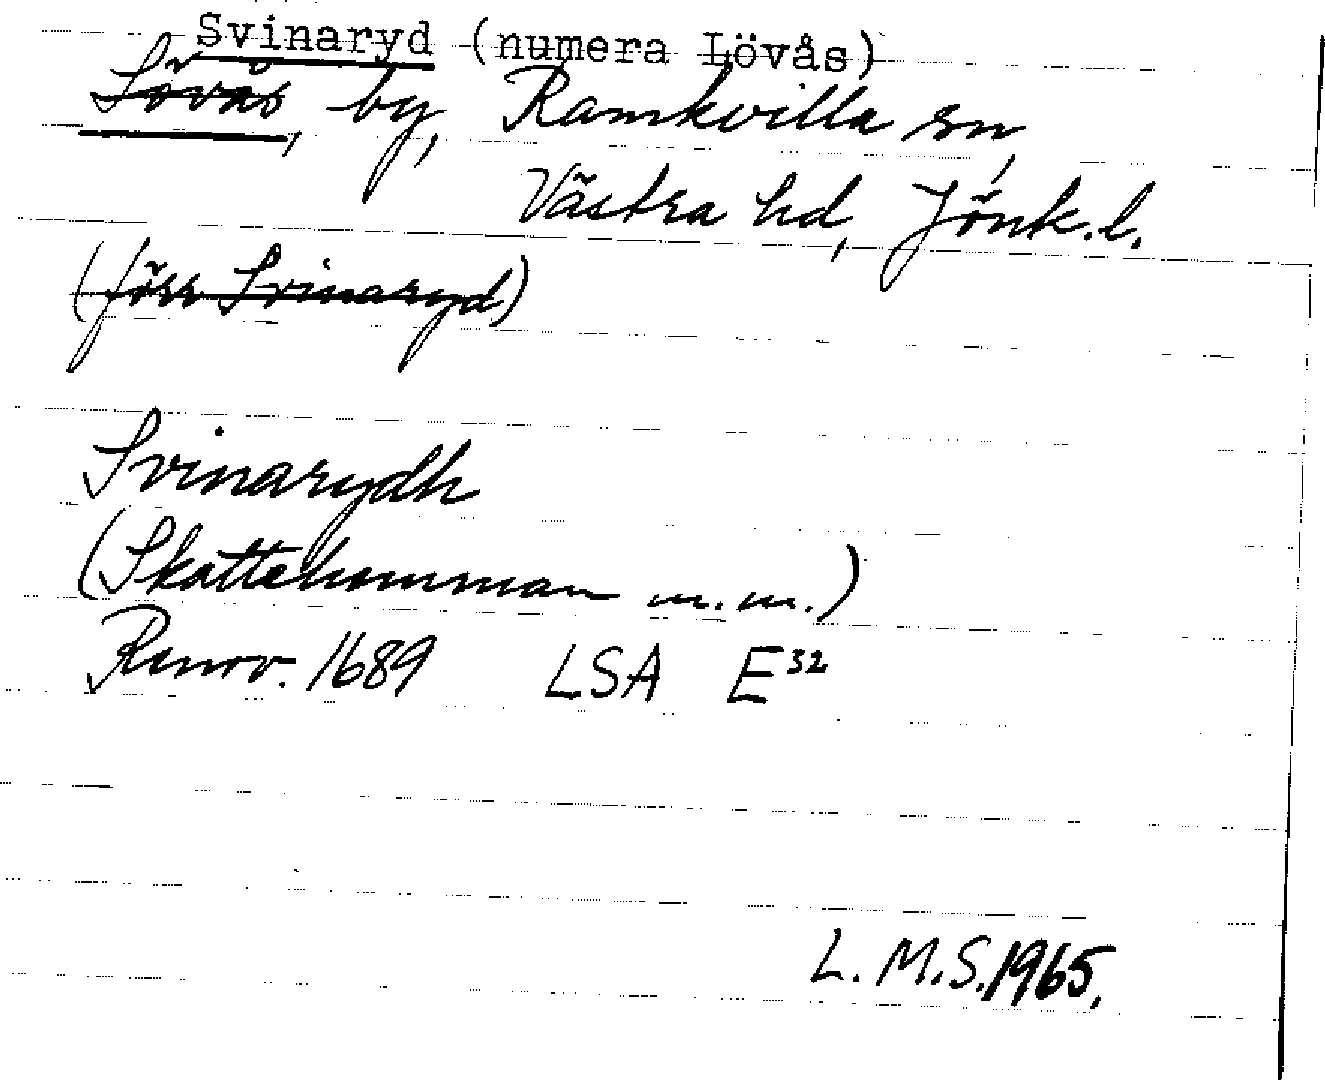 Svinaryd (numera Lövås)
Lövås, by, Ramkvilla sn,
Västra hd, Jönk.l.
(förr Svinaryd)
Svinarydh
(Skattehemman m.m.)
Renov. 1689 LSA E 32
L. M.S. 1965.